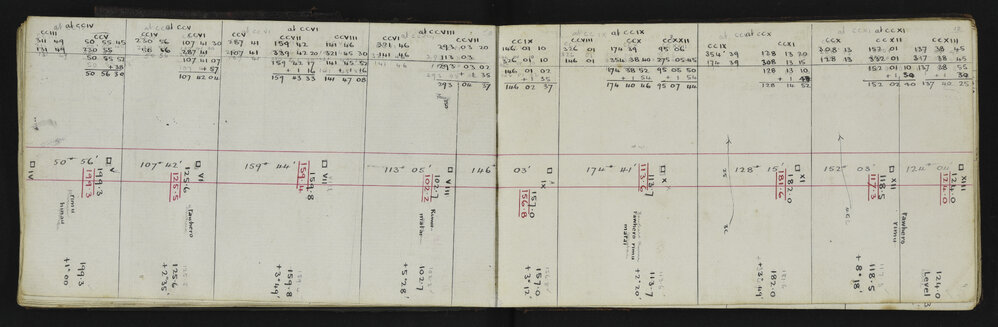 at CCIV
CCIII CCV
311 49 50 55 45
131 49 230 55
50 55 52
+38
50 56 30
at CCV
230 56 107 41 30
287 41
107 41 07
+57
107 42 04
at CCVI
CCVII
287 41 159 42 141 46
107 41 339 42 20 321 45 30
159 42 17 141 45 52
+1 16
159 43 33 141 47 08
at CCVIII
CCVII
321 46 293 03 20
141 46 113 03
293 03 02
+1 35
293 04 37
CCIX
146 01 10
326 01 10
146 01 02
+1 35
146 02 37
at CCIX
CCVIII CCX CCXXII
326 01 174 39 95 06
146 01 354 38 40 275 05 45
174 38 52 95 05 50
+1 54 +1 54
174 40 46 95 07 44
CCIX CCXI
354 39 128 13 20
174 39 308 13 15
128 13 10
128 14 52
at CCXI
CCXII CCXIII
308 13 152 01 137 38 45
128 13 332 01 317 38 45
152 01 10 137 38 55
+1 30 +1 30
152 02 40 137 40 25
□ IV
50° 56'
□ V
199.3
199.3
rimu
hinau
199.3
+1°00
107° 42'
□ VI
125.6
125.5
Tawhero
125.6
+2°35'
159° 44'
□ VII
159.8
159.4
159.8
+3°49'
113° 05'
□ VIII
102.7
102.2
Rimu
matai
102.7
+5°28'
146° 03'
□ IX
157.0
156.8
157.0
+3°12'
174° 41'
□ X
113.7
113.6
Tawhero rimu
matai
113.7
+2°20'
128° 15'
□ XI
182.0
181.6
182.0
152° 03'
□ XII
118.5
117.3
Tawhero
rimu
118.5
+8°18'
124° 04'
□ XIII
124.0
124.0
124.0
Level